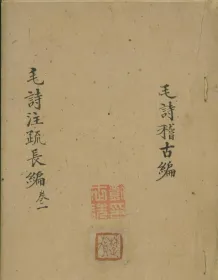 毛詩稽古編
毛詩注疏長編 卷一